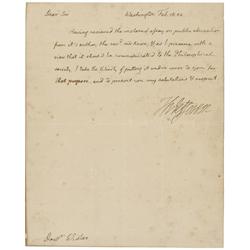 Dear Sir Washington Feb.
Having received the inclosed essay on public education
from it's author, the rev. mr Knox, & I presuming with a
view that it should be communicated to the Philosophical
society, I take the liberty of putting it under cover to you for
that purpose, and to present you my salutations & respect.
Th: Jefferson